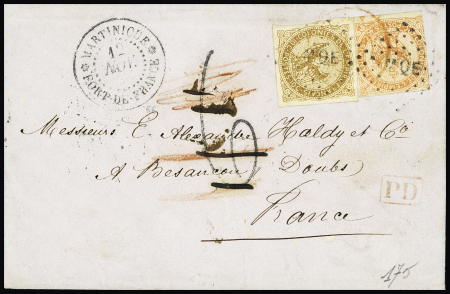 MARTINIQUE
12
NOV.
FORT-DE-FRANCE
Messieurs E. Alexandre Haldy et Cº
A Besançon (Doubs)
France
PD
175